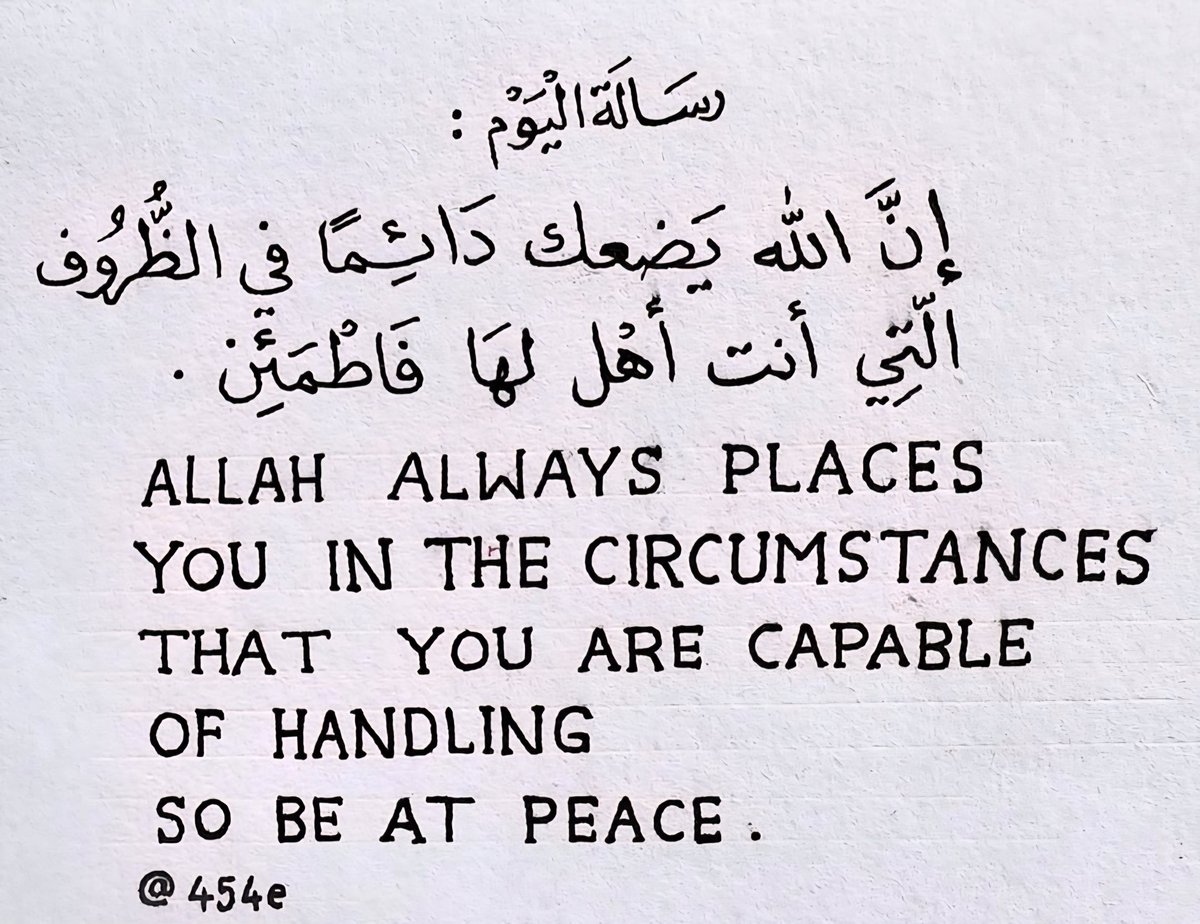 رسَالَة الْيَوْم :
إِنَّ اللّٰه يَضعك دَائِمًا في الظُّرُوف
الّتِي أنت أَهْل لهَا فَاطْمَئِن .
ALLAH ALWAYS PLACES
YOU IN THE CIRCUMSTANCES
THAT YOU ARE CAPABLE
OF HANDLING
SO BE AT PEACE .
@454e